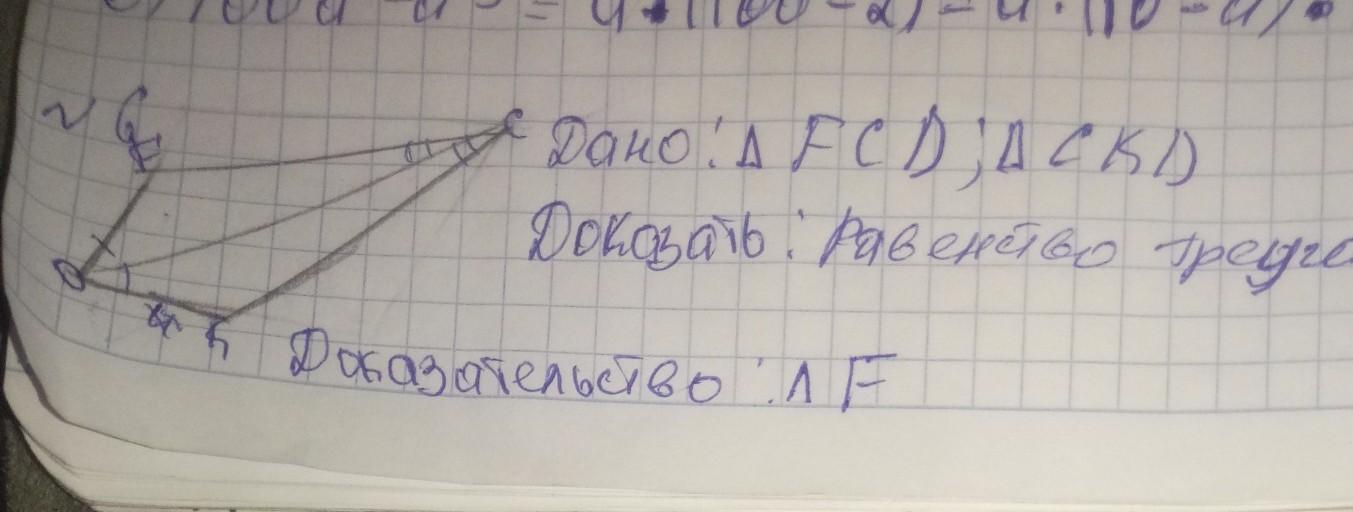 100a
N
F
C
Дано: Δ FCD; Δ CKD
Доказать: Равенство треуго
D
K
Доказательство: Δ F